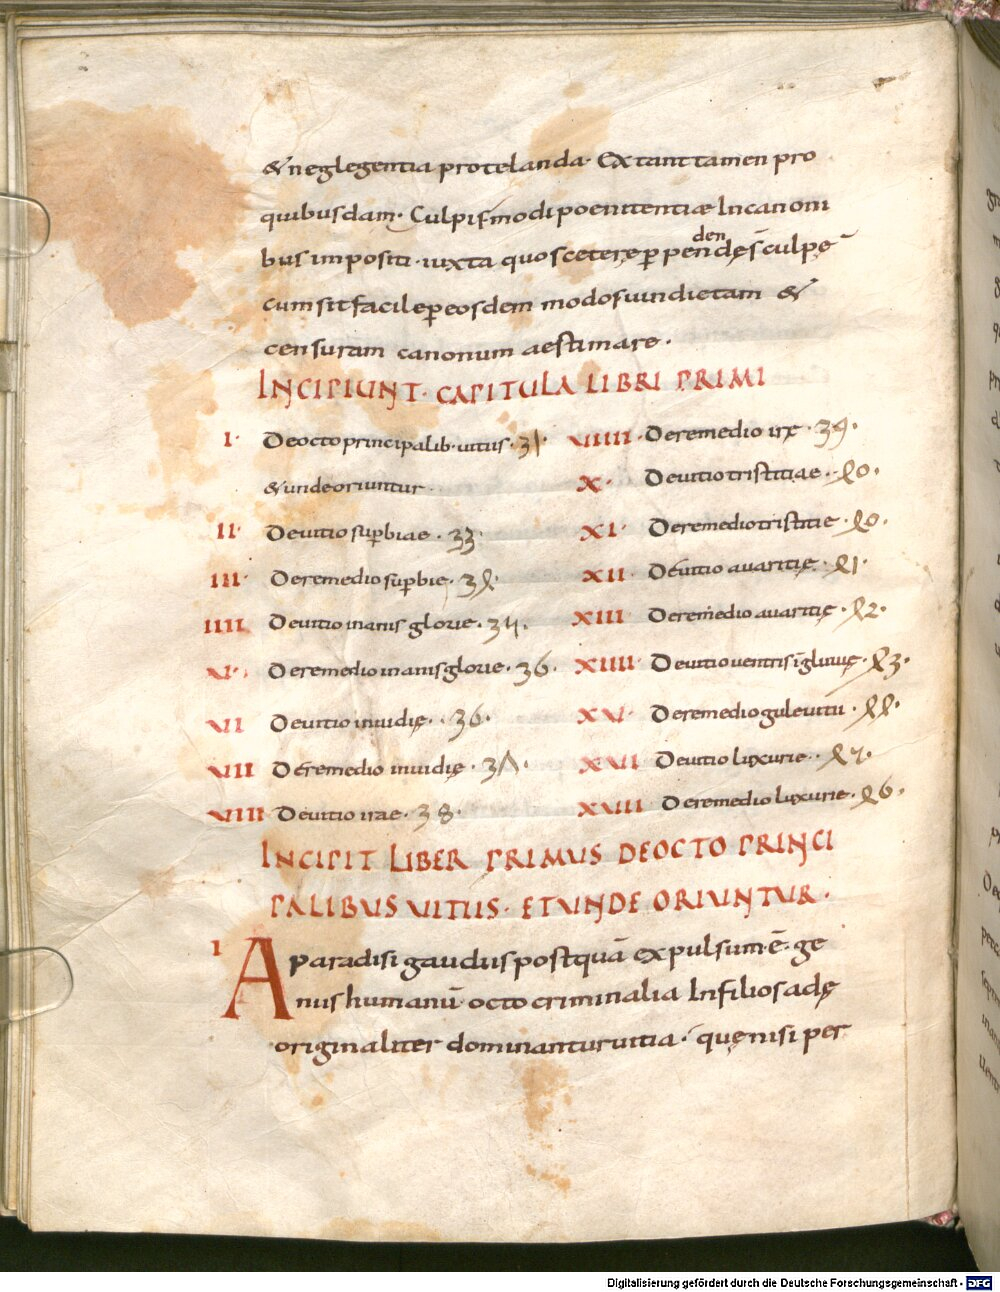 & neglegentia protelanda· Extant tamen pro
quibusdam· Culpis modi poenitentiæ In canoni
bus impositi· iuxta quos ceterę ꝑ pendendęs̄ culpę
cum sit facile ꝑ eosdem modos uindictam &
censuram canonum aestimare·
INCIPIUNT· CAPITULA LIBRI PRIMI
I· De octo principalib· uitiis· 31·
& unde oriuntur·
II· De uitio suꝑbiae· 33·
III· De remedio suꝑbie· 34·
IIII De uitio inanis glorie· 35·
V· De remedio inanis glorie· 36·
VI De uitio inuidię· 36·
VII De remedio inuidię· 37·
VIII De uitio irae· 38·
VIIII· De remedio irę· 39·
X· De uitio tristitiae· 40·
XI· De remedio tristitie· 40·
XII De uitio auaritię· 41·
XIII De remedio auaritię· 42·
XIIII De uitio uentris īgluuię· 43·
XV· De remedio gule uitii· 44·
XVI De uitio luxurie· 45·
XVII De remedio luxurie· 46·
INCIPIT LIBER PRIMUS DE OCTO PRINCI
PALIBUS UITIIS· ET UNDE ORIUNTUR·
I A paradisi gaudiis postquā expulsum· ē· ge
nus humanū· octo criminalia In filios adę
originaliter dominantur uitia· quę nisi per
Digitalisierung gefördert durch die Deutsche Forschungsgemeinschaft - DFG